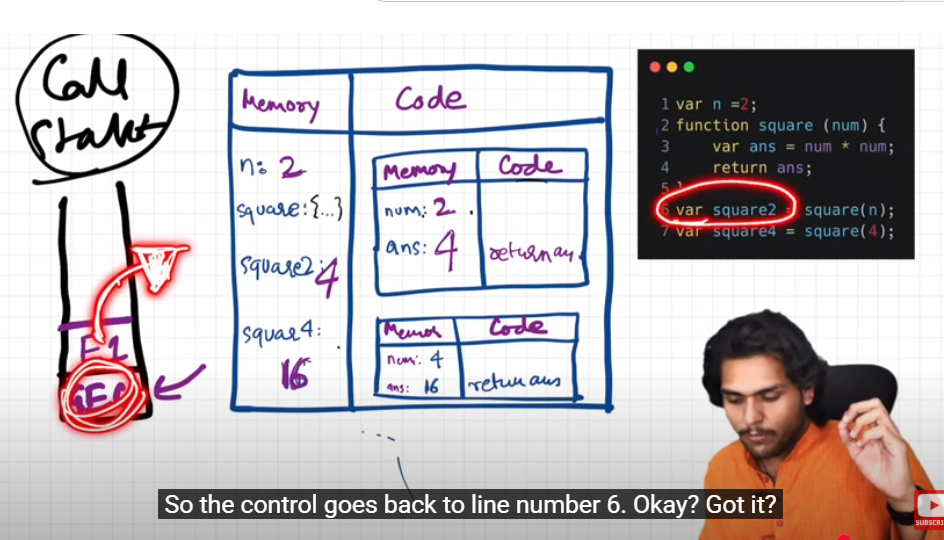 Call
Stack
Memory
Code
n: 2
square: {...}
square2: 4
squar4:
16
Memory
Code
num: 2
ans: 4
return an
Memor
Code
num: 4
ans: 16
return ans
E1
GEC
1 var n =2;
2 function square (num) {
3 var ans = num * num;
4 return ans;
5 }
6 var square2 = square(n);
7 var square4 = square(4);
So the control goes back to line number 6. Okay? Got it?
SUBSCRI